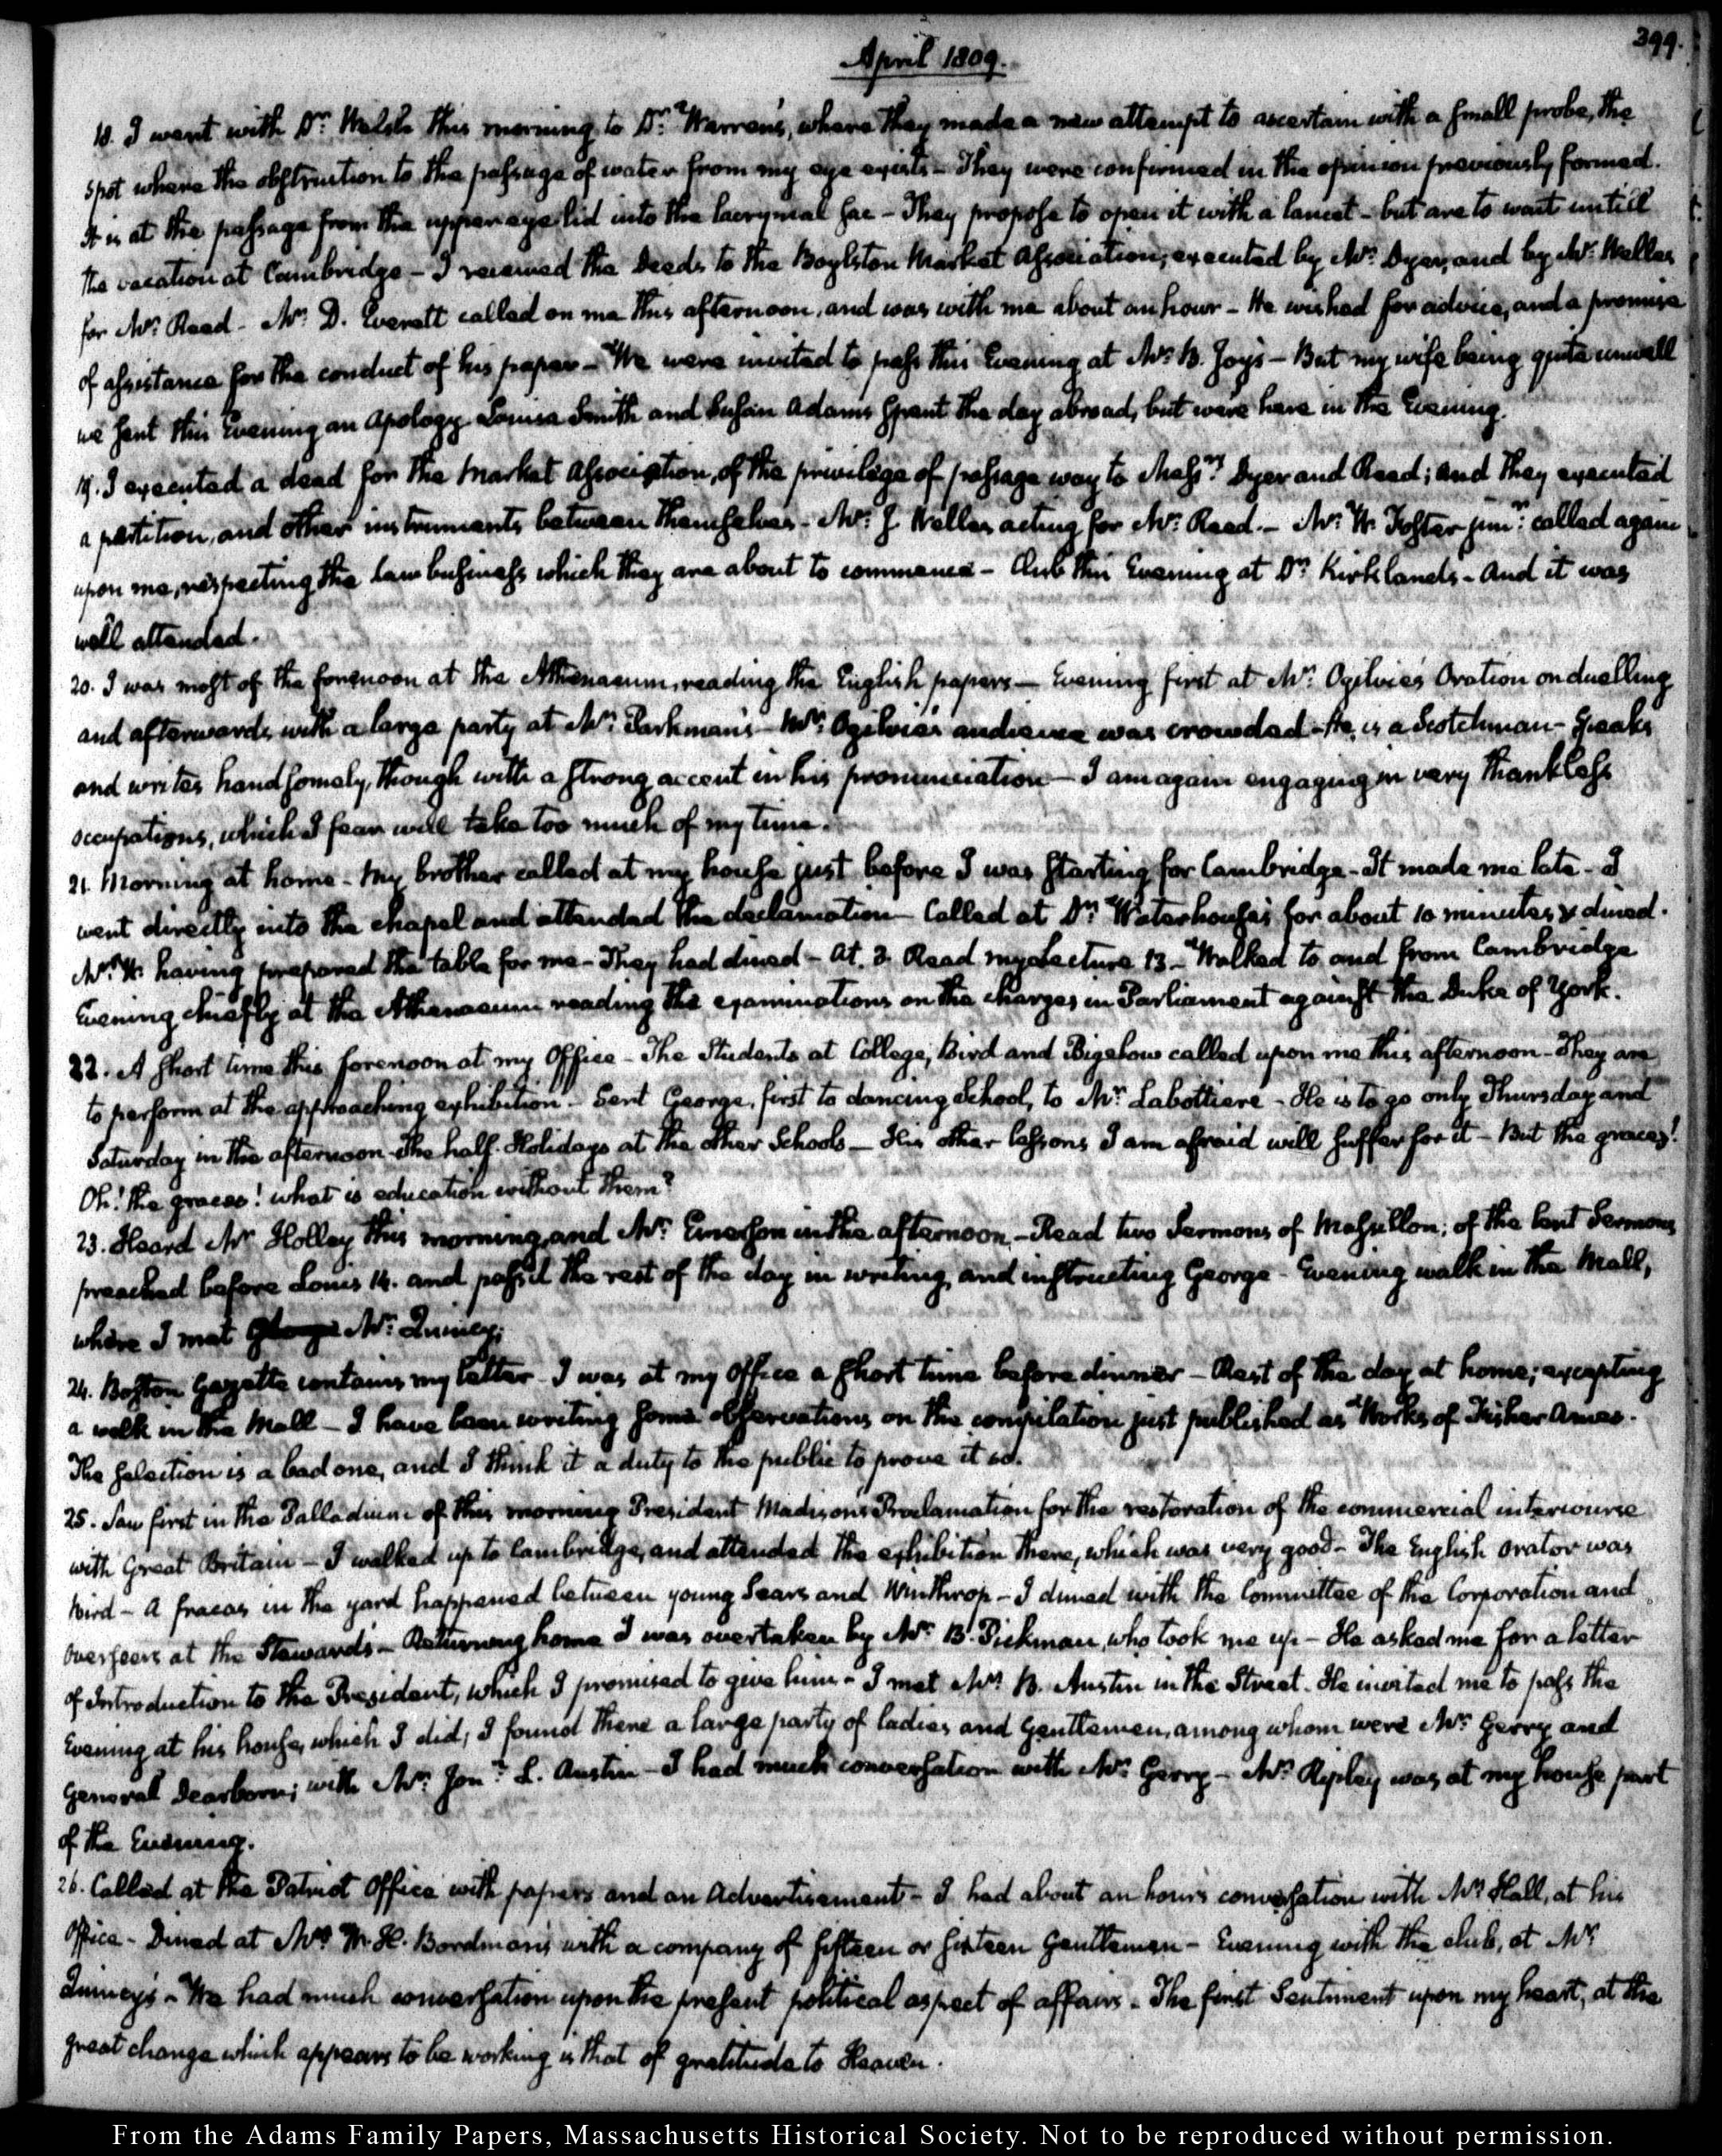 399.
April 1809.
18. I went with Dr. Welsh this morning to Dr. Warren's, where they made a new attempt to ascertain with a small probe, the
spot where the obstruction to the passage of water from my eye exists - They were confirmed in the opinion previously formed.
It is at the passage from the upper eye lid into the lacrymal sac - They propose to open it with a lancet - but are to wait untill
the vacation at Cambridge - I received the Deeds to the Boylston Market Association, executed by Mr. Dyer, and by Mr. Welles
for Mr. Read - Mr. D. Everett called on me this afternoon, and was with me about an hour - He wished for advice, and a promise
of assistance for the conduct of his paper - We were invited to pass this Evening at Mr. B. Joy's - But my wife being quite unwell
we sent this Evening an Apology. Louisa Smith and Susan Adams spent the day abroad, but were here in the Evening.
19. I executed a deed for the Market Association, of the privilege of passage way to Messrs. Dyer and Read; and they executed
a partition, and other instruments between themselves - Mr. J. Welles acting for Mr. Read. - Mr. W. Foster junr. called again
upon me, respecting the law business which they are about to commence - Club this Evening at Dr. Kirkland's - And it was
well attended.
20. I was most of the forenoon at the Athenaeum, reading the English papers - Evening first at Mr. Ogilvie's Oration on duelling
and afterwards with a large party at Mr. Parkman's - Mr. Ogilvie's audience was crowded - He is a Scotchman - Speaks
and writes handsomely, though with a strong accent in his pronunciation - I am again engaging in very thankless
occupations, which I fear will take too much of my time.
21. Morning at home - My brother called at my house just before I was starting for Cambridge - It made me late - I
went directly into the chapel and attended the declamation - Called at Dr. Waterhouse's for about 10 minutes & dined.
Mrs. W. having prepared the table for me - They had dined - At. 3. Read my Lecture 13 - Walked to and from Cambridge
Evening chiefly at the Athenaeum reading the examinations on the charges in Parliament against the Duke of York.
22. A short time this forenoon at my Office - The Students at College, Bird and Bigelow called upon me this afternoon - They are
to perform at the approaching exhibition - Sent George, first to dancing School, to Mr. Labottiere - He is to go only Thursday and
Saturday in the afternoon - the half Holidays at the other Schools - His other lessons I am afraid will suffer for it - But the graces!
Oh! the graces! what is education without them?
23. Heard Mr. Holley this morning, and Mr. Emerson in the afternoon, - Read two Sermons of Massillon; of the lent Sermons
preached before Louis 14. and pass'd the rest of the day in writing, and instructing George - Evening walk in the Mall,
where I met Mr. Quincy.
24. Boston Gazette contains my letter - I was at my Office a short time before dinner - Rest of the day at home; excepting
a walk in the Mall - I have been writing some observations on the compilation just published as Works of Fisher Ames.
The selection is a bad one, and I think it a duty to the public to prove it so.
25. Saw first in the Palladium of this morning President Madison's Proclamation for the restoration of the commercial intercourse
with Great Britain - I walked up to Cambridge, and attended the exhibition there, which was very good - The English orator was
Bird - A fracas in the yard happened between young Sears and Winthrop - I dined with the Committee of the Corporation and
Overseers at the Stewards' - Returning home I was overtaken by Mr. B. Pickman, who took me up - He asked me for a letter
of Introduction to the President, which I promised to give him - I met Mr. B. Austin in the Street. He invited me to pass the
Evening at his house, which I did; I found there a large party of ladies and Gentlemen, among whom were Mr. Gerry and
General Dearborn; with Mr. Jon. L. Austin - I had much conversation with Mr. Gerry - Mr. Ripley was at my house part
of the Evening.
26. Called at the Patriot Office with papers and an Advertisement - I had about an hour's conversation with Mr. Hall, at his
Office - Dined at Mr. W. H. Bordman's with a company of fifteen or sixteen Gentlemen - Evening with the club, at Mr.
Quincy's - We had much conversation upon the present political aspect of affairs - The first Sentiment upon my heart, at the
great change which appears to be working is that of gratitude to Heaven.
From the Adams Family Papers, Massachusetts Historical Society. Not to be reproduced without permission.